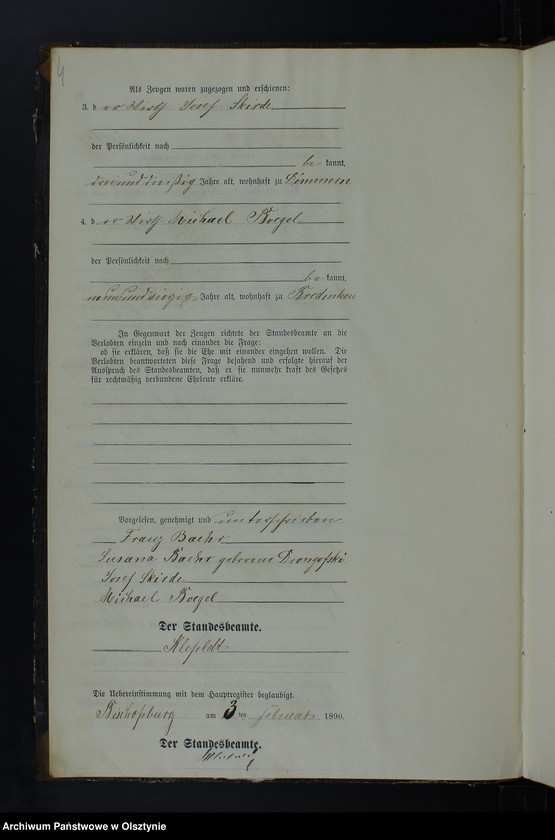 4
Als Zeugen waren zugezogen und erschienen:
3. der Wirth Josef Skirde
der Persönlichkeit nach
be kannt,
dreiunddreißig Jahre alt, wohnhaft zu Dimmern
4. der Wirth Michael Boegel
der Persönlichkeit nach
be kannt,
Jahre alt, wohnhaft zu Bredinken
In Gegenwart der Zeugen richtete der Standesbeamte an die
Verlobten einzeln und nach einander die Frage:
ob sie erklären, daß sie die Ehe mit einander eingehen wollen. Die
Verlobten beantworteten diese Frage bejahend und erfolgte hierauf der
Ausspruch des Standesbeamten, daß er sie nunmehr kraft des Gesetzes
für rechtmäßig verbundene Eheleute erkläre.
Vorgelesen, genehmigt und unterschrieben
Franz Baehr
Susana Baehr geborene Drongofski
Josef Skirde
Michael Boegel
Der Standesbeamte.
Klefeldt
Die Uebereinstimmung mit dem Hauptregister beglaubigt.
Bischofsburg am 3 ten Februar 1890.
Der Standesbeamte.
Archiwum Państwowe w Olsztynie